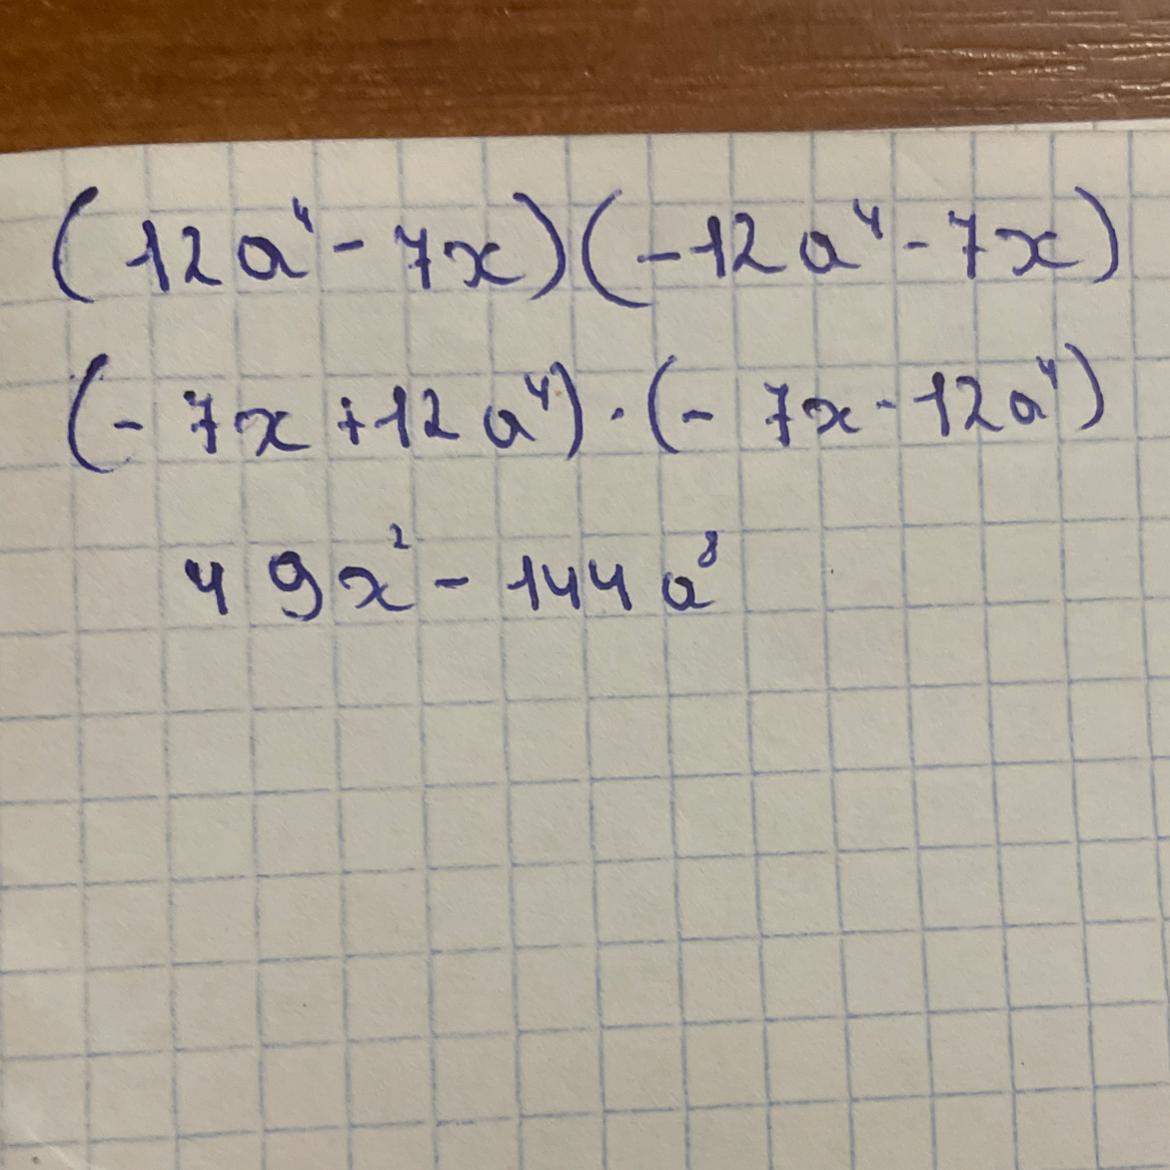 (12a⁴ - 7x)(-12a⁴ - 7x)
(- 7x + 12a⁴) · (- 7x - 12a⁴)
49x² - 144a⁸